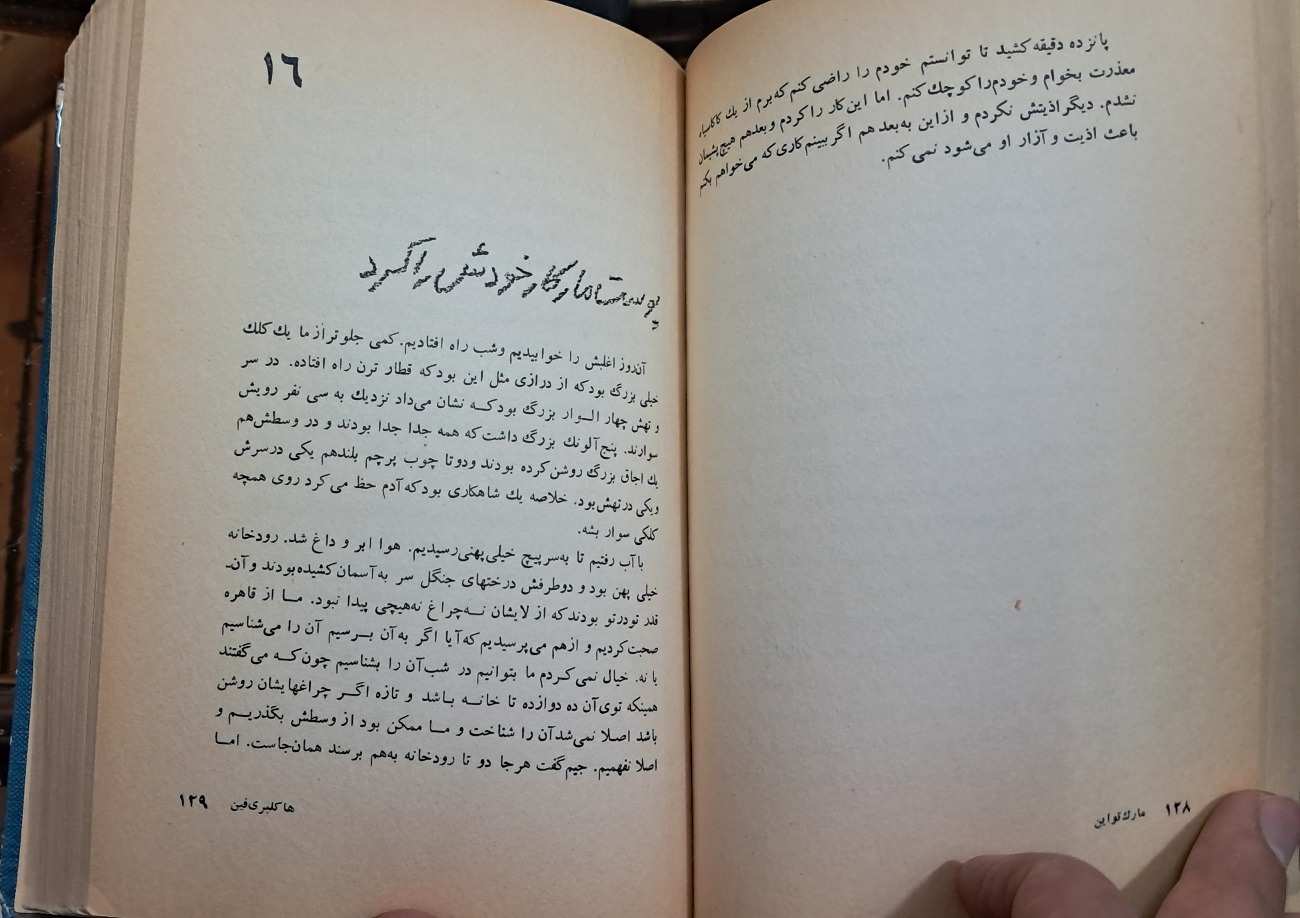 پانزده دقیقه کشید تا توانستم خودم را راضی کنم که برم از یك کاکاسیاه
معذرت بخوام و خودم را کوچك کنم. اما این کار را کردم و بعدهم هیچ پشیمان
نشدم. دیگر اذیتش نکردم و ازاین به بعد هم اگر ببینم کاری که می‌خواهم بکنم
باعث اذیت و آزار او می‌شود نمی‌کنم.
۱۲۸ مارك تواین
۱٦
پوست مار کار خودش را کرد
آن‌روز اغلبش را خوابیدیم وشب راه افتادیم. کمی جلوتر از ما یك کلك
خیلی بزرگ بود که از درازی مثل این بود که قطار ترن راه افتاده. در سر
و تهش چهار الـوار بزرگ بود کـه نشان می‌داد نزدیك به سی نفر رویش
سوارند. پنج آلونك بزرگ داشت که همه جدا جدا بودند و در وسطش هم
یك اجاق بزرگ روشن کرده بودند ودوتا چوب پرچم بلندهم یکی درسرش
ویکی در تهش بود. خلاصه یك شاهکاری بود که آدم حظ می‌کرد روی همچه
کلکی سوار بشه.
با آب رفتیم تا به‌سر پیچ خیلی پهنی رسیدیم. هوا ابر و داغ شد. رودخانه
خیلی پهن بود و دوطرفش درختهای جنگل سر به آسمان کشیده بودند و آن‌ـ
قدر تودرتو بودند که از لایشان نـه چراغ نه هیچی پیدا نبود. مـا از قاهره
صحبت کردیم و ازهم می‌پرسیدیم که آیا اگر به آن بـرسیم آن را می‌شناسیم
یا نه. خیال نمی‌کـردم ما بتوانیم در شب آن را بشناسیم چون کـه می‌گفتند
همینکه توی آن ده دوازده تا خانـه بـاشد و تازه اگـر چراغهایشان روشن
باشد اصلا نمی‌شد آن را شناخت و مـا ممکن بود از وسطش بگذریـم و
اصلا نفهمیم. جیم گفت هرجا دو تا رودخانه به‌هم برسند همان‌جاست. امـا
هاکلبری فین ۱۲۹